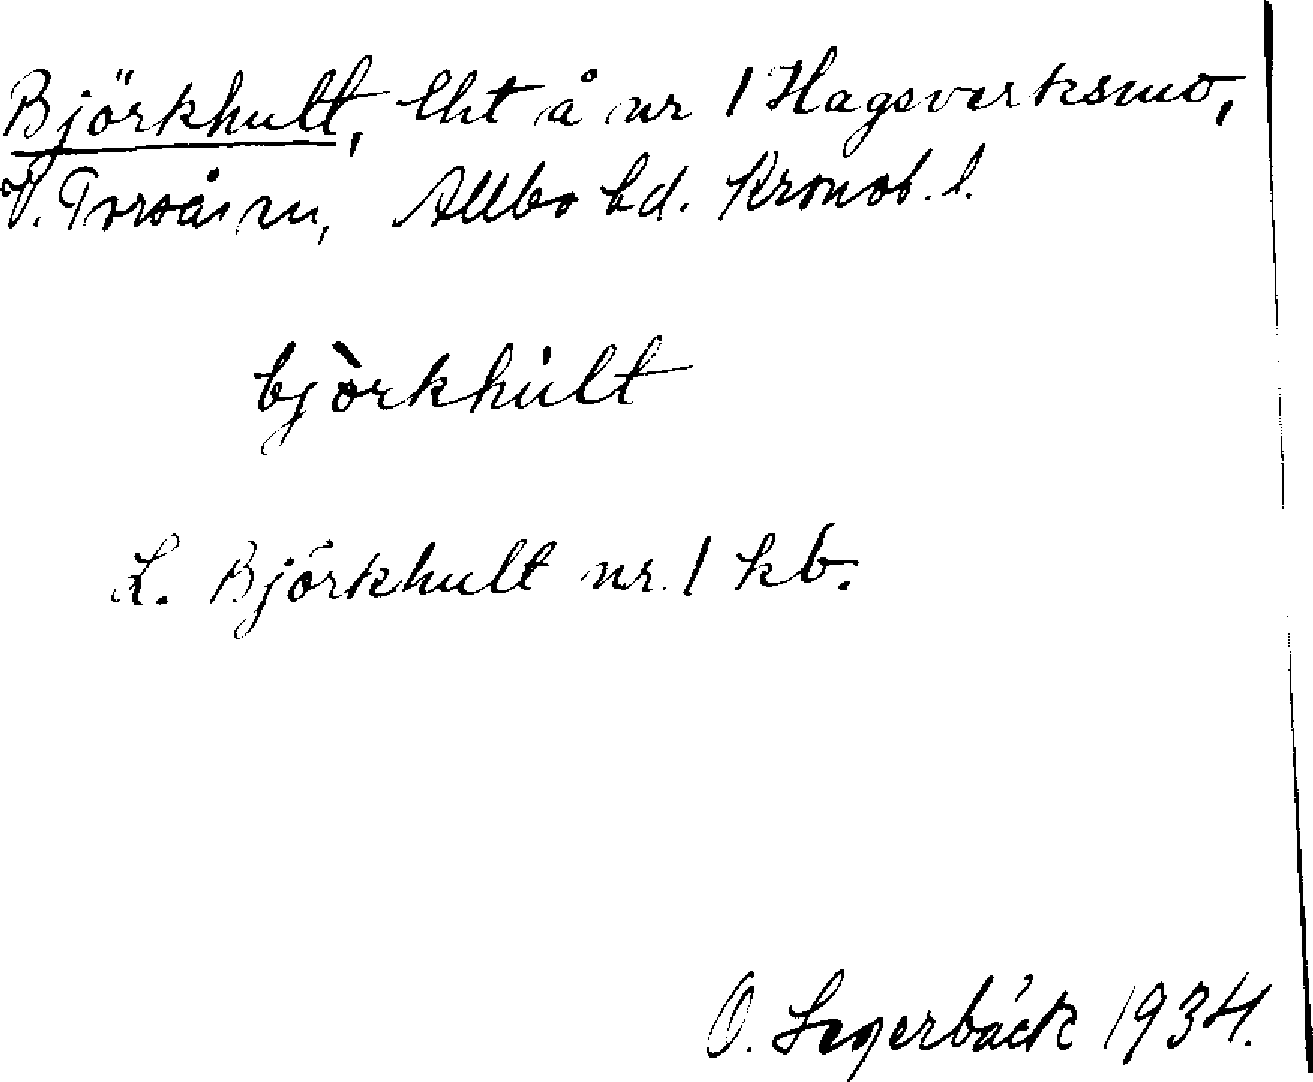 Björkhult, lht å nr 1 Hagsverksmo,
V. Torsås sn, Allbo hd. Kronob. l.
bjòrkhult
L. Björkhult nr. 1 kb.
O. Segerbäck 1934.